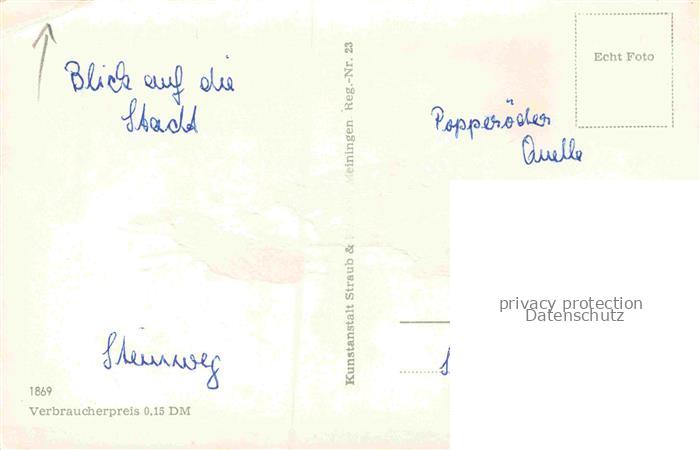 Blick auf die
Stadt
Steinweg
1869
Verbraucherpreis 0,15 DM
Kunstanstalt Straub & Meiningen Reg.-Nr. 23
Echt Foto
Popperöder
Quelle
privacy protection
Datenschutz